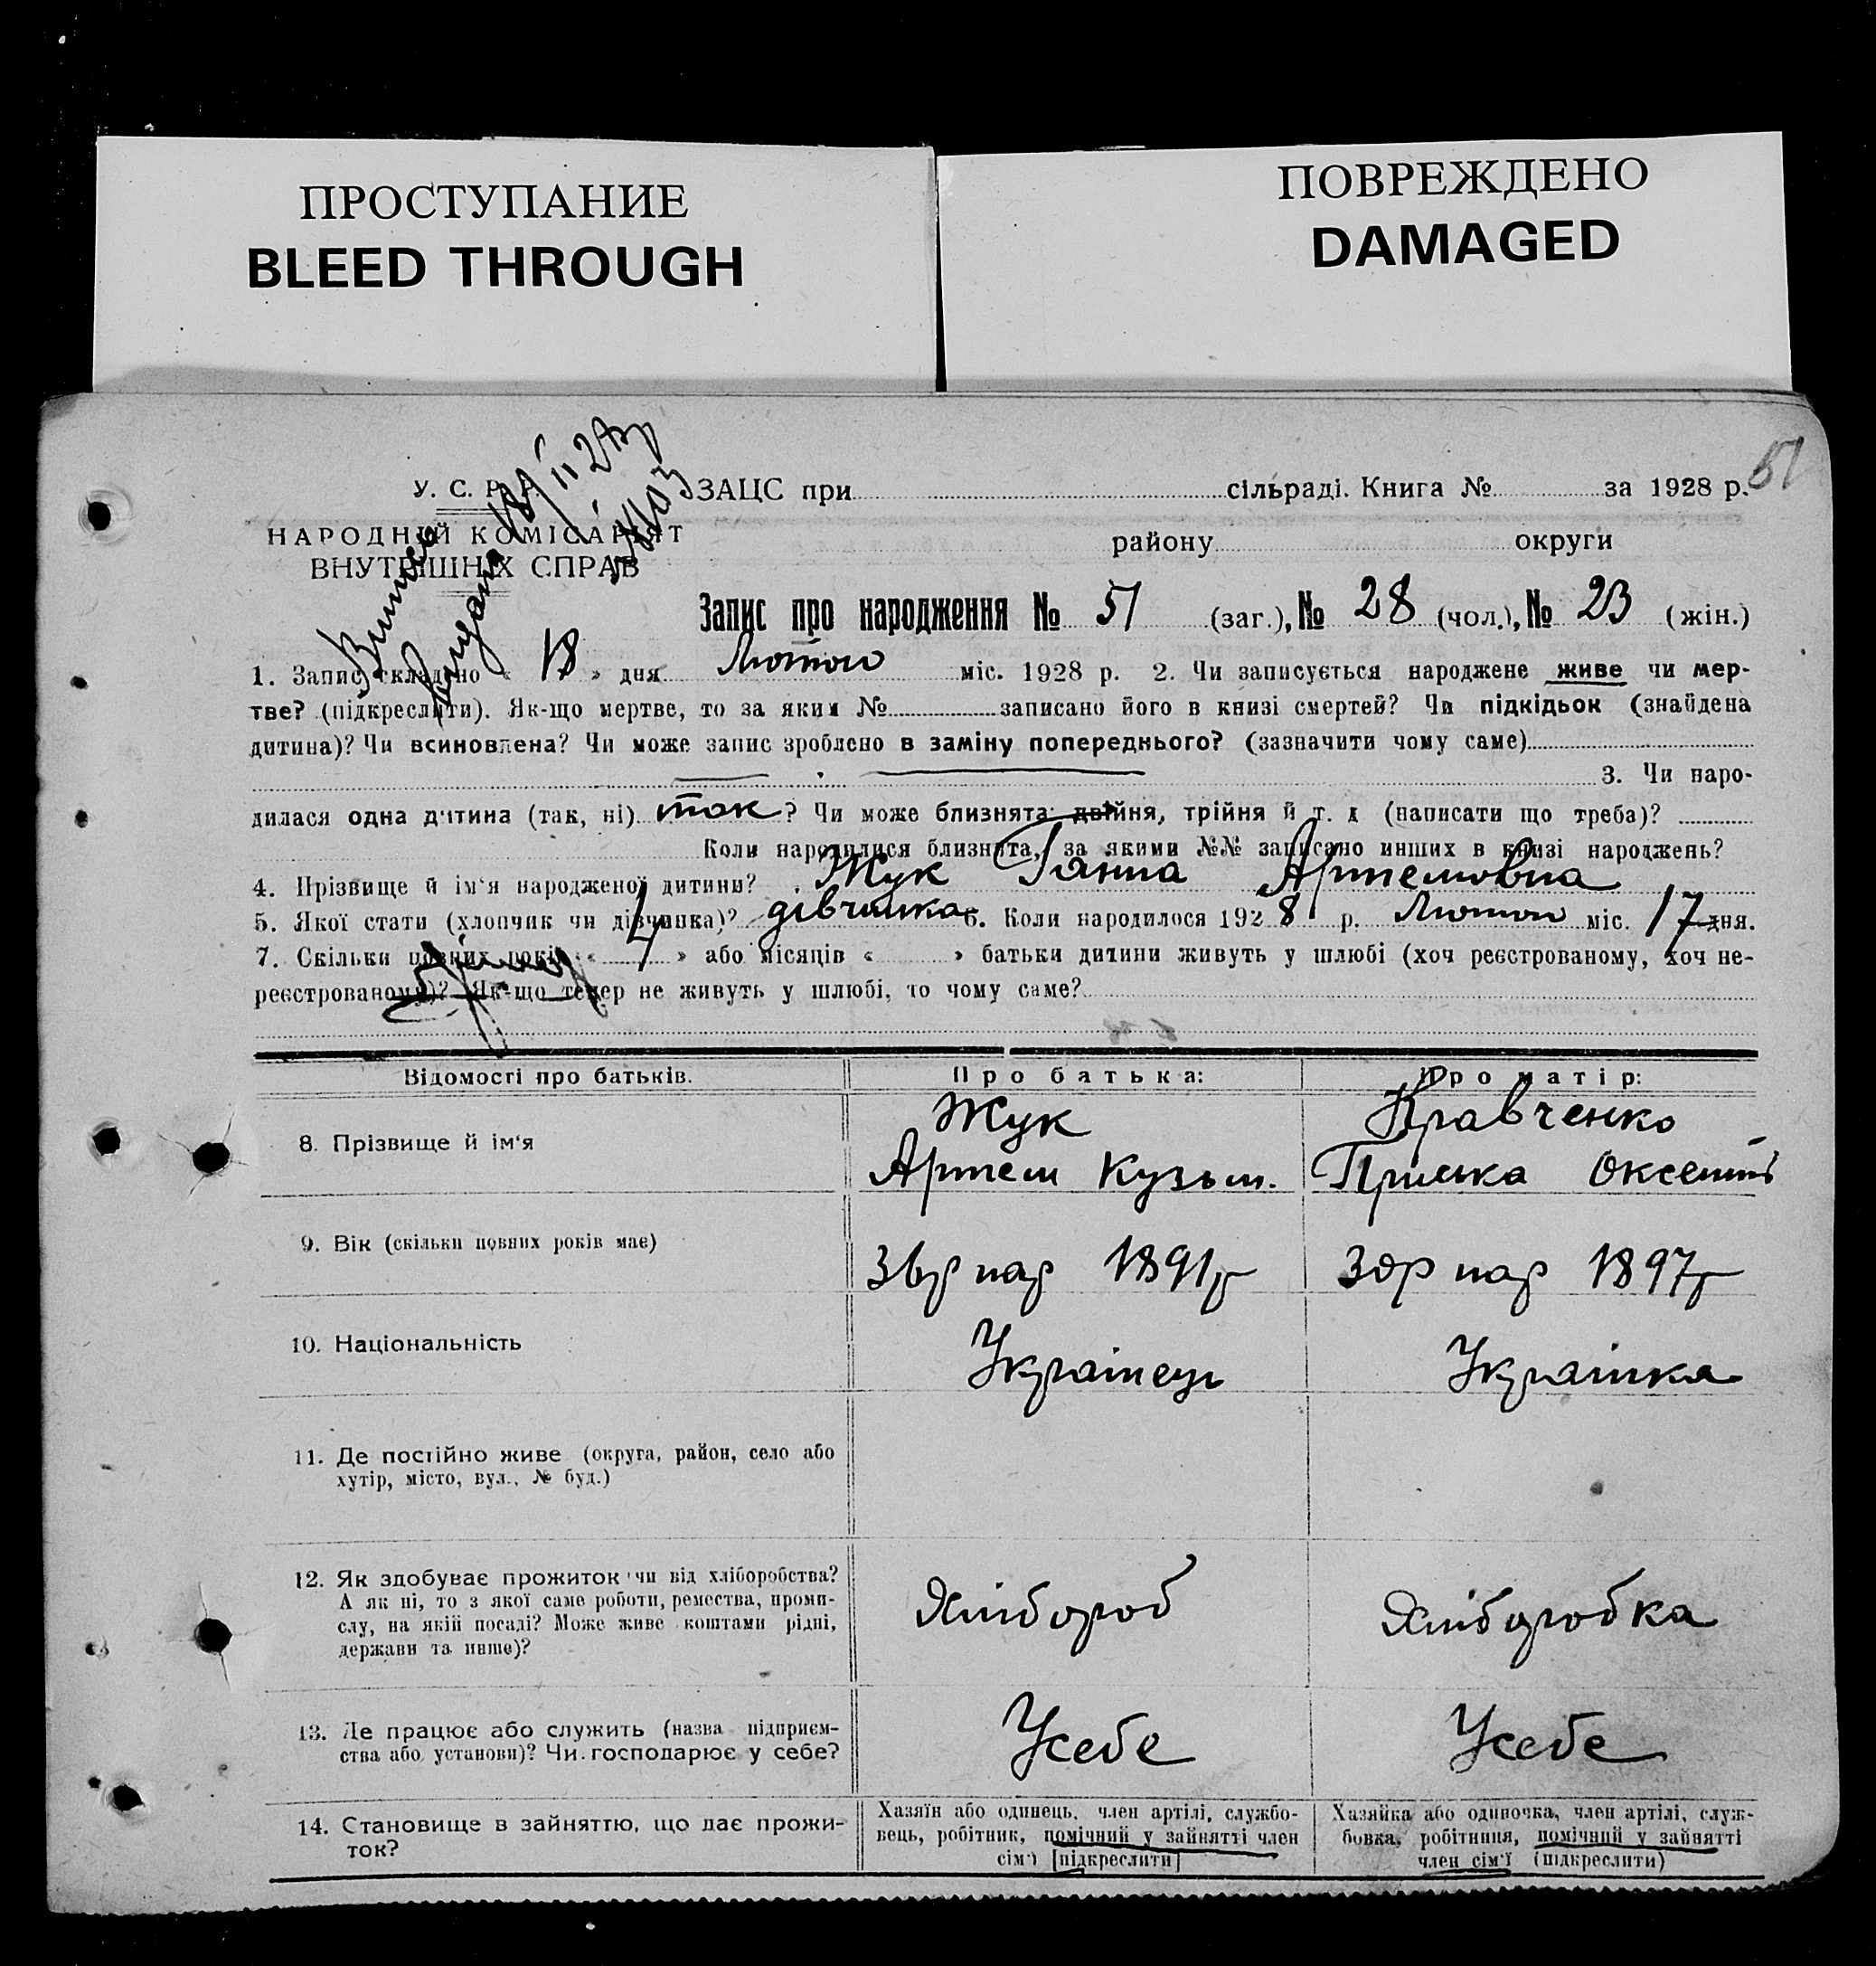 ПРОСТУПАНИЕ
BLEED THROUGH
ПОВРЕЖДЕНО
DAMAGED
51
У. С. Р. Р.
НАРОДНИЙ КОМІСАРІЯТ
ВНУТРІШНІХ СПРАВ
ЗАЦС при сільраді. Книга № за 1928 р.
району округи
Запис про народження № 51 (заг.), № 28 (чол.), № 23 (жін.)
1. Запис складено « 18 » дня Лютого міс. 1928 р. 2. Чи записується народжене живе чи мер-
тве? (підкреслити). Як-що мертве, то за яким № записано його в книзі смертей? Чи підкідьок (знайдена
дитина)? Чи всиновлена? Чи може запис зроблено в заміну попереднього? (зазначити чому саме)
3. Чи наро-
дилася одна дитина (так, ні) так ? Чи може близнята: двійня, трійня й т. д (написати що треба)?
Коли народилися близнята, за якими №№ записано инших в книзі народжень?
4. Прізвище й ім'я народженої дитини? Жук Ганна Артемовна
5. Якої стати (хлопчик чи дівчинка)? дівчинка 6. Коли народилося 1928 р. Лютого міс. 17 дня.
7. Скільки повних років « 4 » або місяців « » батьки дитини живуть у шлюбі (хоч реєстрованому, хоч не-
реєстрованому)? Як-що тепер не живуть у шлюбі, то чому саме?
Відомості про батьків. Про батька: Про матір:
8. Прізвище й ім'я
Жук
Артем Кузьм.
Кравченко
Приська Оксент
9. Вік (скільки повних років має)
36р нар 1891р
30р нар 1897р
10. Національність
Українець
Українка
11. Де постійно живе (округа, район, село або
хутір, місто, вул., № буд.)
12. Як здобуває прожиток чи від хліборобства?
А як ні, то з якої саме роботи, ремества, проми-
слу, на якій посаді? Може живе коштами рідні,
держави та инше)?
Хлібороб
Хліборобка
13. Де працює або служить (назва підприєм-
ства або установи)? Чи господарює у себе?
У себе
У себе
14. Становище в зайняттю, що дає прожи-
ток?
Хазяїн або одинець, член артілі, службо-
вець, робітник, помічний у зайнятті член
сім'ї [підкреслити]
Хазяйка або одиночка, член артілі, служ-
бовка, робітниця, помічний у зайнятті
член сім'ї (підкреслити)